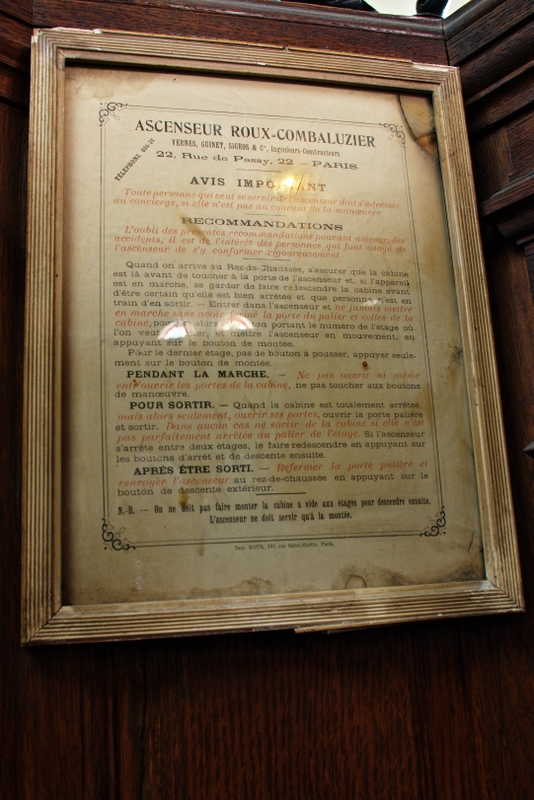 ASCENSEUR ROUX-COMBALUZIER
VERNES, GUINET, SIGROS & Cie, Ingénieurs-Constructeurs
TÉLÉPHONE
22, Rue de Passy, 22 — PARIS
AVIS IMPORTANT
Toute personne qui veut se servir de l'ascenseur doit s'adresser
au concierge, si elle n'est pas au courant de la manœuvre.
RECOMMANDATIONS
L'oubli des présentes recommandations pouvant amener des
accidents, il est de l'intérêt des personnes qui font usage de
l'ascenseur de s'y conformer rigoureusement.
Quand on arrive au Rez-de-Chaussée, s'assurer que la cabine
est là avant de toucher à la porte de l'ascenseur et, si l'appareil
est en marche, se garder de faire redescendre la cabine avant
d'être certain qu'elle est bien arrêtée et que personne n'est en
train d'en sortir. — Entrer dans l'ascenseur et ne jamais mettre
en marche sans avoir fermé la porte du palier et celles de la
cabine, pousser alors le bouton portant le numéro de l'étage où
l'on veut monter, et mettre l'ascenseur en mouvement, en
appuyant sur le bouton de montée.
Pour le dernier étage, pas de bouton à pousser, appuyer seule-
ment sur le bouton de montée.
PENDANT LA MARCHE. — Ne pas ouvrir ni même
entr'ouvrir les portes de la cabine, ne pas toucher aux boutons
de manœuvre.
POUR SORTIR. — Quand la cabine est totalement arrêtée,
mais alors seulement, ouvrir ses portes, ouvrir la porte palière
et sortir. Dans aucun cas ne sortir de la cabine si elle n'est
pas parfaitement arrêtée au palier de l'étage. Si l'ascenseur
s'arrête entre deux étages, le faire redescendre en appuyant sur
les boutons d'arrêt et de descente ensuite.
APRÈS ÊTRE SORTI. — Refermer la porte palière et
renvoyer l'ascenseur au rez-de-chaussée en appuyant sur le
bouton de descente extérieur.
N.-B. — On ne doit pas faire monter la cabine à vide aux étages pour descendre ensuite.
L'ascenseur ne doit servir qu'à la montée.
Imp. rue Saint-Martin, Paris.